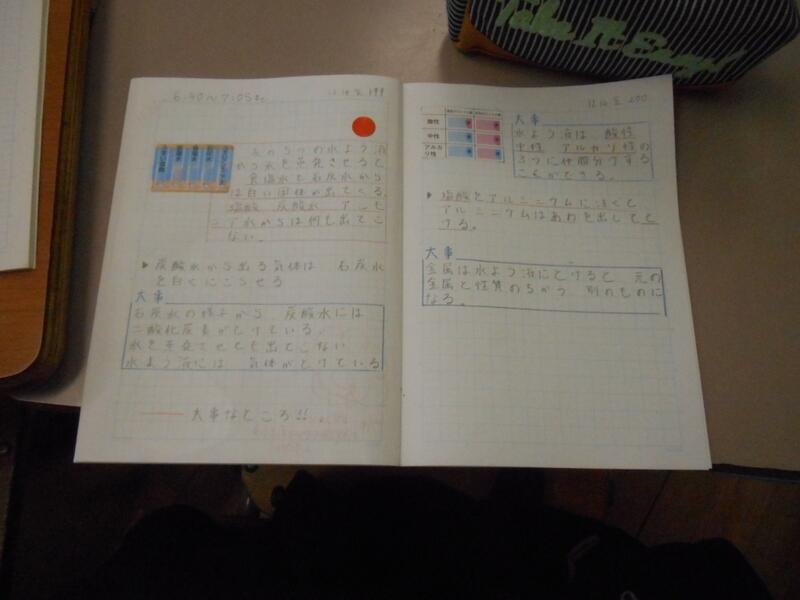 6:40〜7:05まで
12.14 金 199
左の5つの水よう液
から水を蒸発させると
食塩水と石灰水から
は白い固体が出てくる。
塩酸 炭酸水 アンモ
ニア水からは何も出てこ
ない。
▶ 炭酸水から出る気体は 石灰水
を白くにごらせる
大事
石灰水の様子から 炭酸水には
二酸化炭素がとけている。
水を蒸発させても出てこない
水よう液には 気体がとけている
大事なところ!!
12.14 金 200
酸性
中性
アルカリ性
大事
水よう液は 酸性
中性 アルカリ性の
3つに仲間分けする
ことができる。
▶ 塩酸をアルミニウムに注ぐと
アルミニウムはあわを出してと
ける。
大事
金属は水よう液にとけると 元の
金属と性質のちがう 別のものに
なる。
Take It Easy!